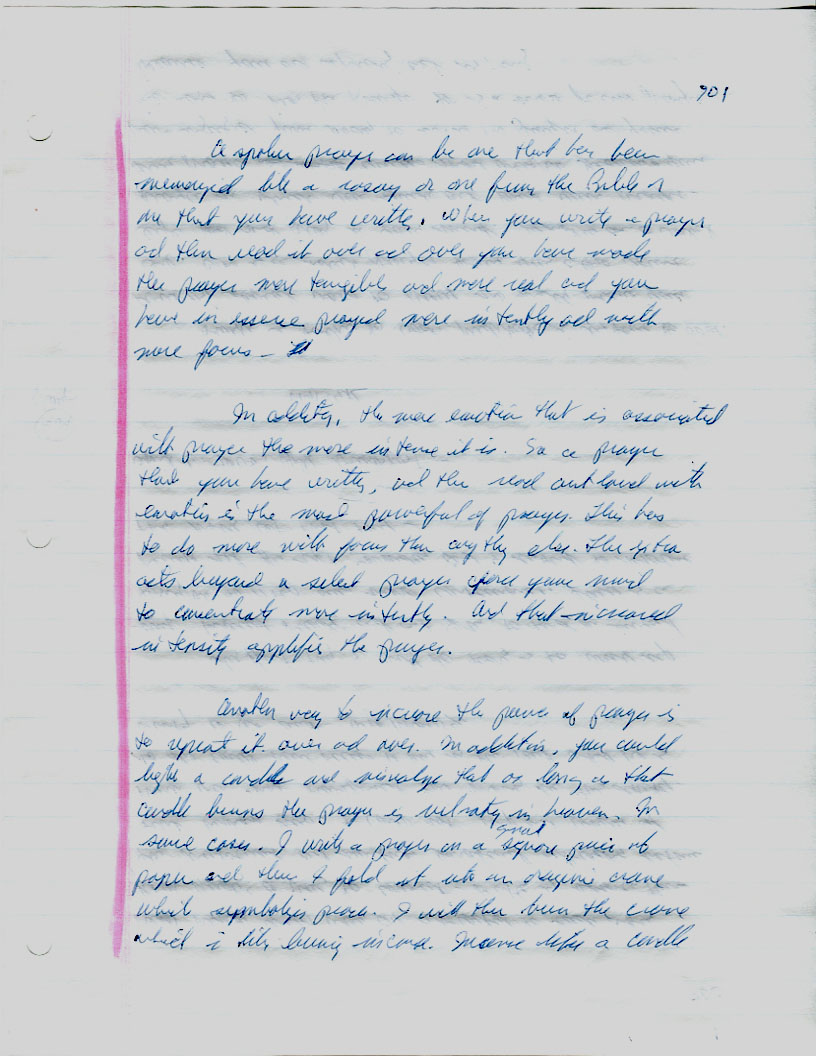 901
A spoken prayer can be one that has been
memorized like a rosary or one from the Bible or
one that you have written. When you write a prayer
and then read it over and over you have made
the prayer more tangible and more real and you
have in essence prayed more intently and with
more focus -
In addition, the more emotion that is associated
with prayer the more intense it is. So a prayer
that you have written, and then read out loud with
emotion is the most powerful of prayers. This has
to do more with focus than any thing else. The extra
acts beyond a silent prayer your mind
to concentrate more intently. And that increased
intensity amplifies the prayer.
Another way to increase the power of prayer is
to repeat it over and over. In addition, you could
light a candle and visualize that as long as that
candle burns the prayer is vibrating in heaven. In
some cases. I write a prayer on a small square piece of
paper and then I fold it into an origami crane
which symbolizes peace. I will then burn the crane
which is like burning incense. Incense like a candle